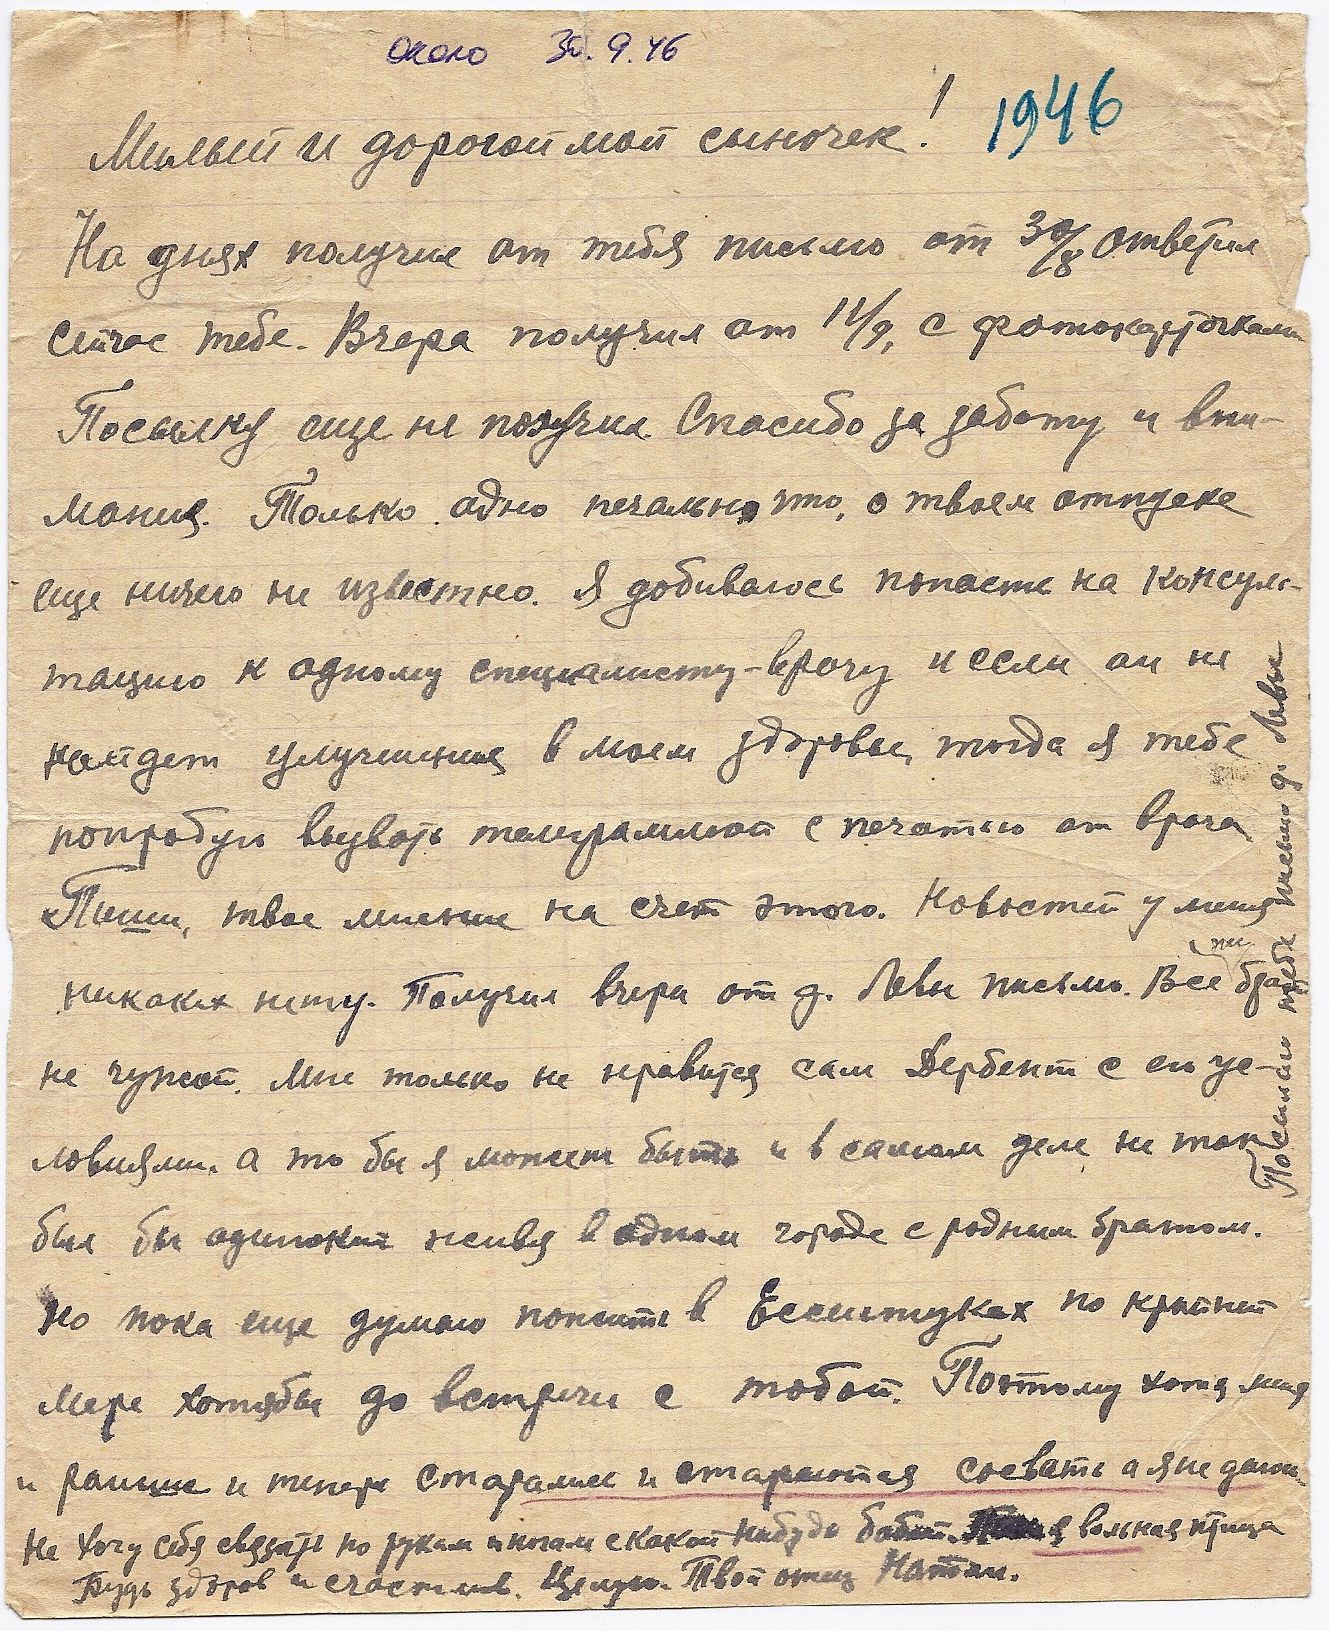 около 30.9.46
1946
Милый и дорогой мой сыночек!
На днях получил от тебя письмо от 30/8 ответил
сейчас тебе. Вчера получил от 11/9, с фотокарточками
Посылку еще не получил. Спасибо за заботу и вни-
мания. Только одно печально, что, о твоем отпуске
еще ничего не известно. Я добиваюсь попасть на консуль-
тацию к одному специалисту-врачу и если он не
найдет улучшения в моем здоровье, тогда я тебе
попробую вызвать телеграммой с печатью от врача
Пиши, твое мнение на счет этого. Новостей у меня
никаких нету. Получил вчера от д. Левы письмо. Все брат
не чужой. Мне только не нравится сам Дербент с его ус-
ловиями. а то бы я может быть и в самом деле не так
был бы одинокий живя в одном городе с родным братом.
Но пока еще думаю пожить в Ессентуках по крайней
мере хотябы до встречи с тобой. Поэтому хотя меня
и раньше и теперь старались и стараются сосватать а я не
Не хочу себя связать по рукам и ногам с какой нибудь бабой. я вольная птица
Будь здоров и счастлив. Целую. Твой отец Натан.
Посылаю тебе письмо д. Левы